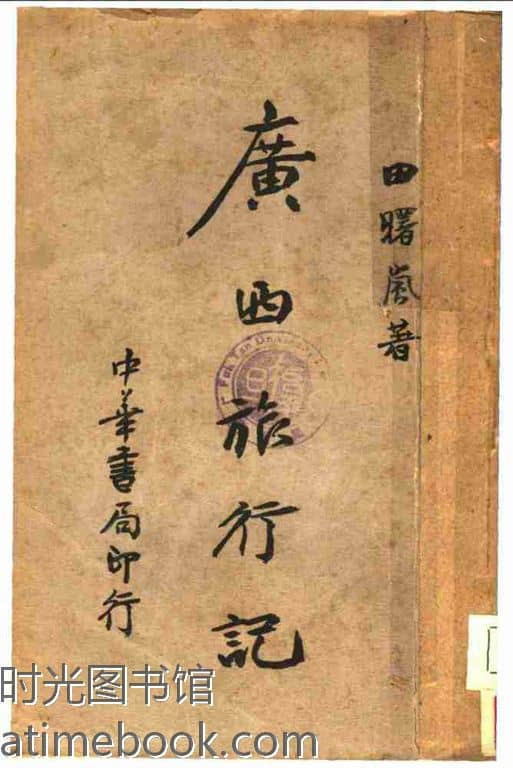 田曙嵐著
廣西旅行記
中華書局印行
Fuh Tan University
时光图书馆
atimebook.com